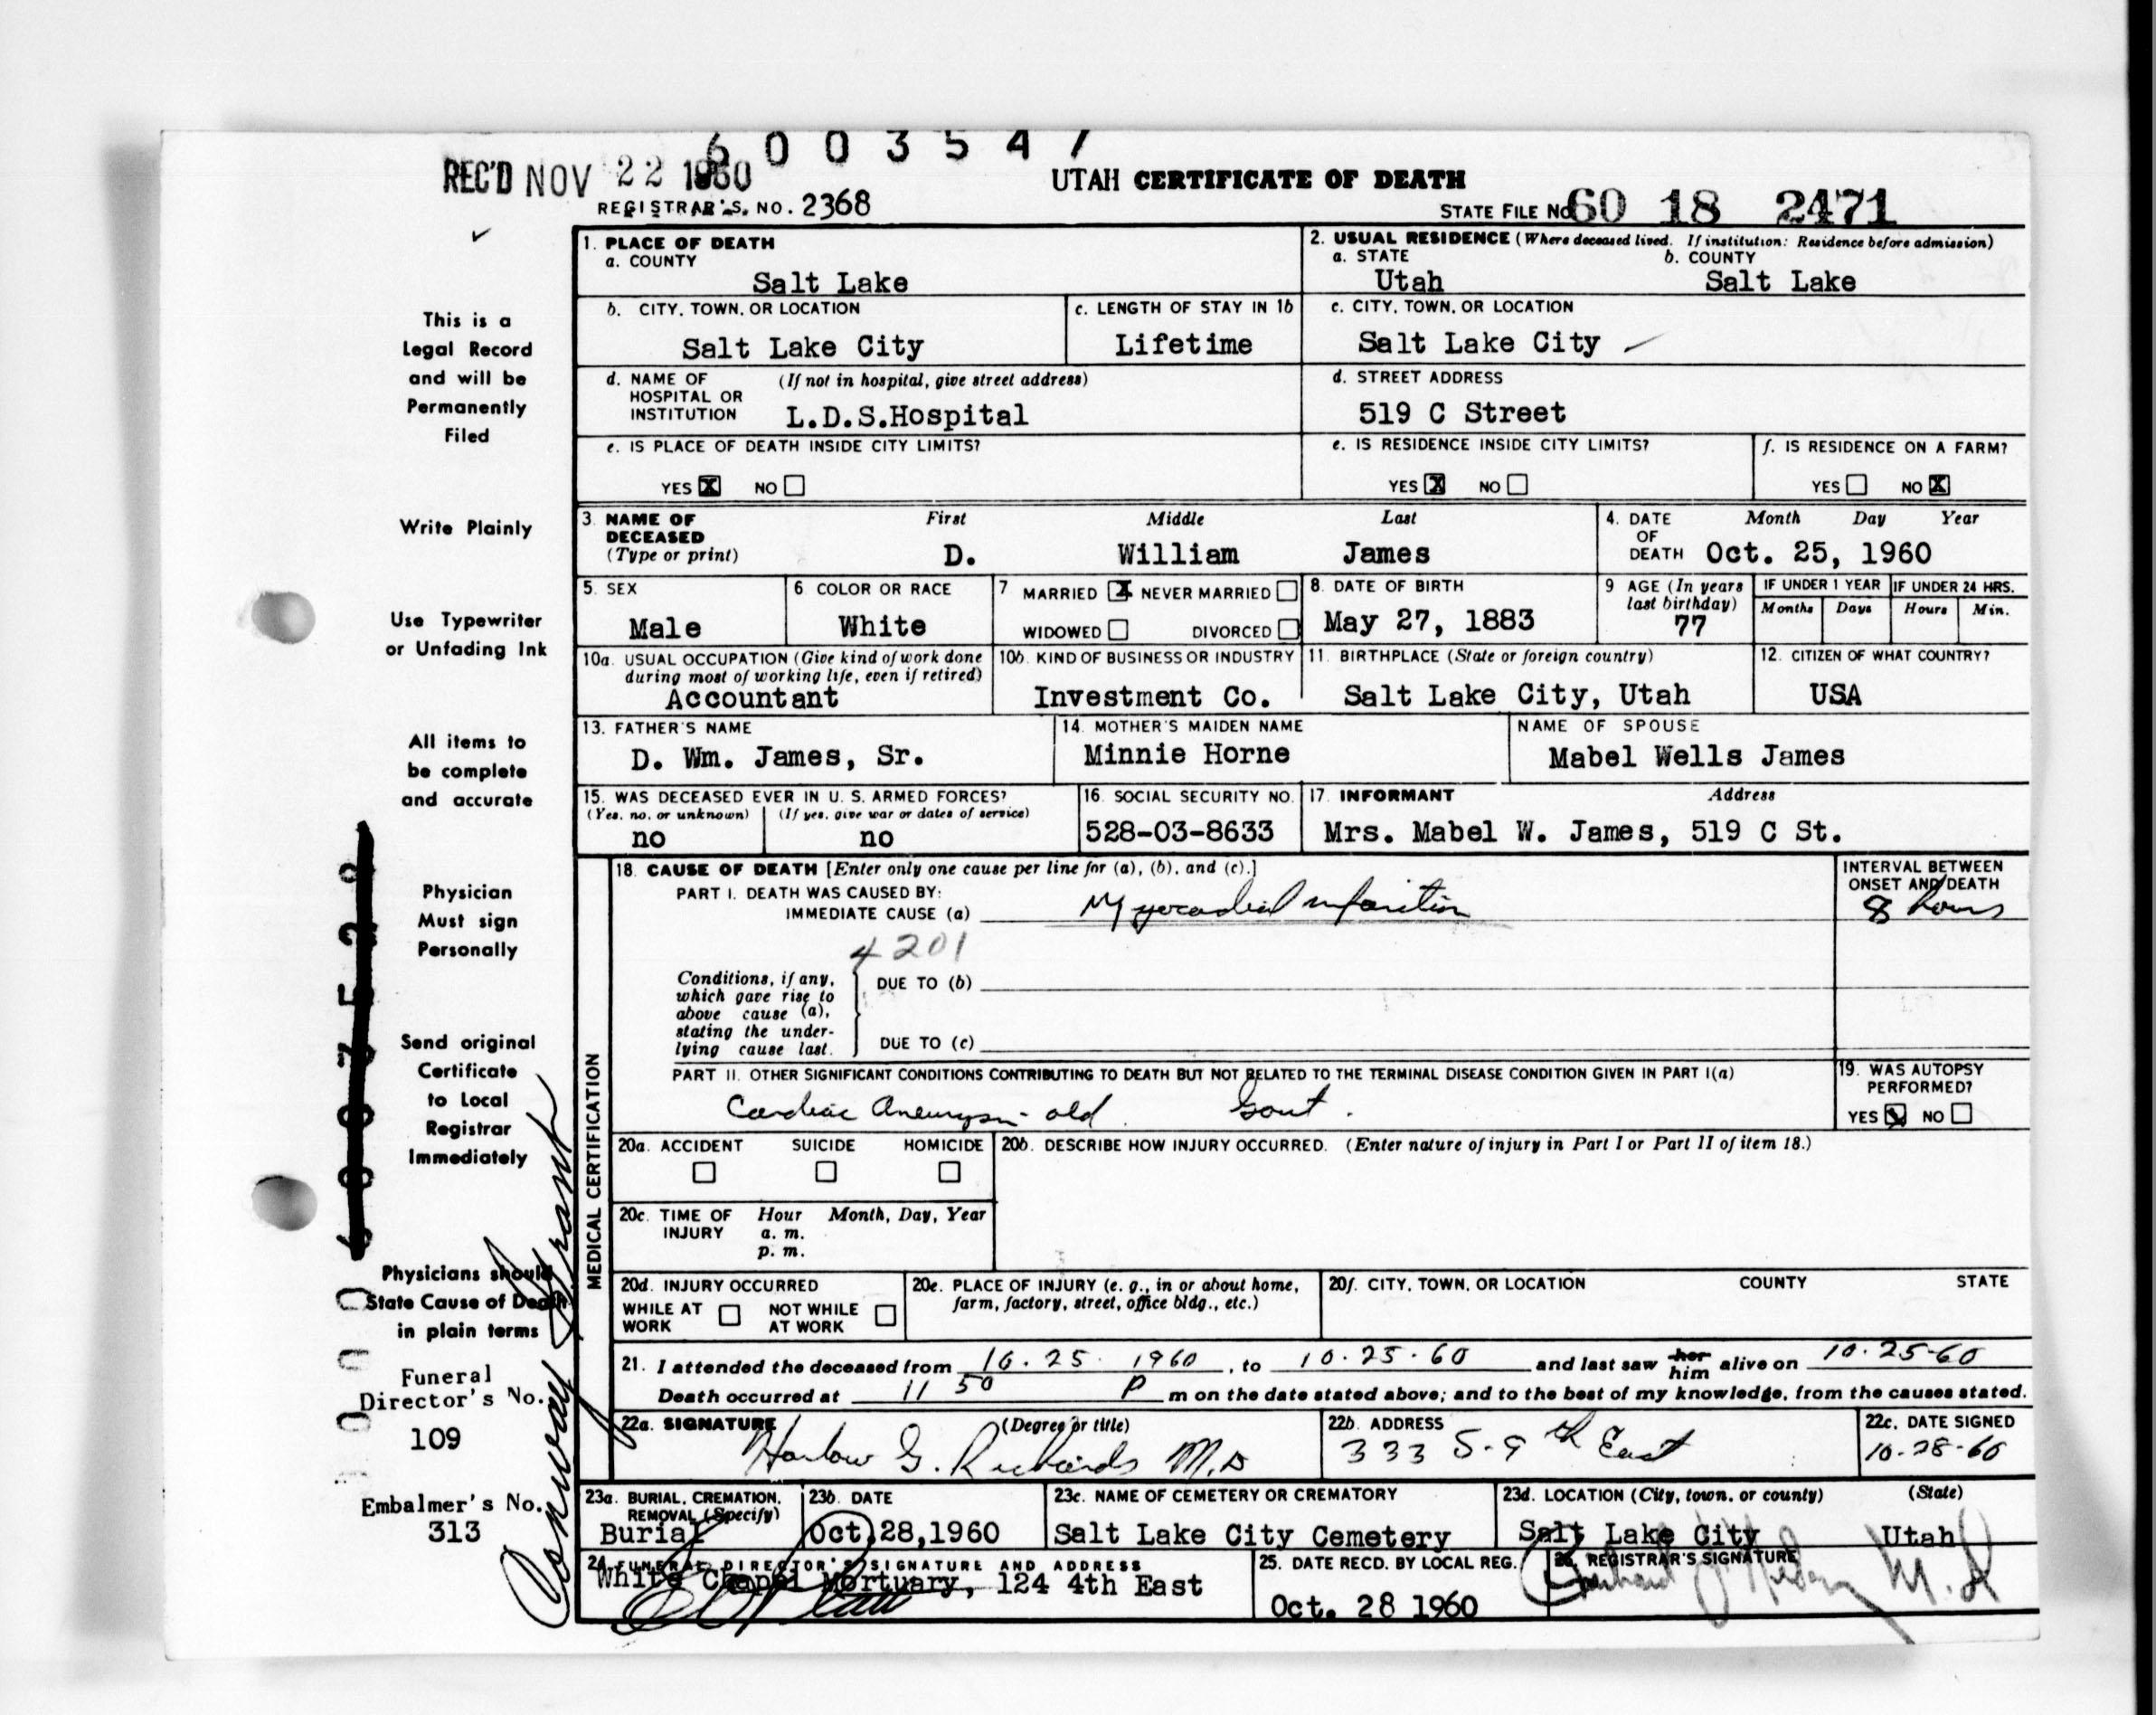 6003547
REC'D NOV 22 1960
UTAH CERTIFICATE OF DEATH
REGISTRAR'S. NO. 2368
STATE FILE NO. 60 18 2471
This is a
Legal Record
and will be
Permanently
Filed
Write Plainly
Use Typewriter
or Unfading Ink
All items to
be complete
and accurate
Physician
Must sign
Personally
Send original
Certificate
to Local
Registrar
Immediately
Physicians should
State Cause of Death
in plain terms
Funeral
Director's No.
109
Embalmer's No.
313
1. PLACE OF DEATH
a. COUNTY
Salt Lake
2. USUAL RESIDENCE (Where deceased lived. If institution: Residence before admission)
a. STATE b. COUNTY
Utah Salt Lake
b. CITY, TOWN, OR LOCATION
Salt Lake City
c. LENGTH OF STAY IN 1b
Lifetime
c. CITY, TOWN, OR LOCATION
Salt Lake City
d. NAME OF HOSPITAL OR INSTITUTION (If not in hospital, give street address)
L.D.S.Hospital
d. STREET ADDRESS
519 C Street
e. IS PLACE OF DEATH INSIDE CITY LIMITS?
YES X NO
e. IS RESIDENCE INSIDE CITY LIMITS?
YES X NO
f. IS RESIDENCE ON A FARM?
YES NO X
3. NAME OF DECEASED (Type or print)
First Middle Last
D. William James
4. DATE OF DEATH Month Day Year
Oct. 25, 1960
5. SEX
Male
6 COLOR OR RACE
White
7 MARRIED X NEVER MARRIED
WIDOWED DIVORCED
8. DATE OF BIRTH
May 27, 1883
9 AGE (In years last birthday)
77
IF UNDER 1 YEAR IF UNDER 24 HRS.
Months Days Hours Min.
10a. USUAL OCCUPATION (Give kind of work done during most of working life, even if retired)
Accountant
10b. KIND OF BUSINESS OR INDUSTRY
Investment Co.
11. BIRTHPLACE (State or foreign country)
Salt Lake City, Utah
12. CITIZEN OF WHAT COUNTRY?
USA
13. FATHER'S NAME
D. Wm. James, Sr.
14. MOTHER'S MAIDEN NAME
Minnie Horne
NAME OF SPOUSE
Mabel Wells James
15. WAS DECEASED EVER IN U. S. ARMED FORCES?
(Yes, no, or unknown) (If yes, give war or dates of service)
no no
16. SOCIAL SECURITY NO.
528-03-8633
17. INFORMANT Address
Mrs. Mabel W. James, 519 C St.
MEDICAL CERTIFICATION
18. CAUSE OF DEATH [Enter only one cause per line for (a), (b), and (c).]
PART I. DEATH WAS CAUSED BY:
IMMEDIATE CAUSE (a) Myocardial infarction
INTERVAL BETWEEN ONSET AND DEATH
8 hours
4201
Conditions, if any, which gave rise to above cause (a), stating the underlying cause last.
DUE TO (b)
DUE TO (c)
PART II. OTHER SIGNIFICANT CONDITIONS CONTRIBUTING TO DEATH BUT NOT RELATED TO THE TERMINAL DISEASE CONDITION GIVEN IN PART I(a)
Cardiac Aneurysm - old. Gout.
19. WAS AUTOPSY PERFORMED?
YES X NO
20a. ACCIDENT SUICIDE HOMICIDE
20b. DESCRIBE HOW INJURY OCCURRED. (Enter nature of injury in Part I or Part II of item 18.)
20c. TIME OF INJURY Hour Month, Day, Year
a. m.
p. m.
20d. INJURY OCCURRED
WHILE AT WORK NOT WHILE AT WORK
20e. PLACE OF INJURY (e. g., in or about home, farm, factory, street, office bldg., etc.)
20f. CITY, TOWN, OR LOCATION COUNTY STATE
21. I attended the deceased from 10. 25. 1960, to 10.25.60 and last saw her him alive on 10.25-60
Death occurred at 11 50 P m on the date stated above; and to the best of my knowledge, from the causes stated.
22a. SIGNATURE (Degree or title)
Harlow G. Richards M.D
22b. ADDRESS
333 S-9th East
22c. DATE SIGNED
10-28-60
23a. BURIAL, CREMATION, REMOVAL (Specify)
Burial
23b. DATE
Oct.28,1960
23c. NAME OF CEMETERY OR CREMATORY
Salt Lake City Cemetery
23d. LOCATION (City, town, or county) (State)
Salt Lake City Utah
24. FUNERAL DIRECTOR'S SIGNATURE AND ADDRESS
White Chapel Mortuary, 124 4th East
25. DATE RECD. BY LOCAL REG.
Oct. 28 1960
26. REGISTRAR'S SIGNATURE
M.D